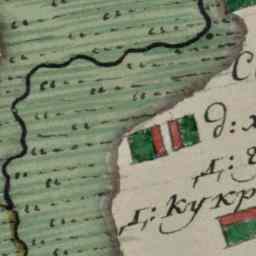 С
д: х
д: ч
д: Кукр